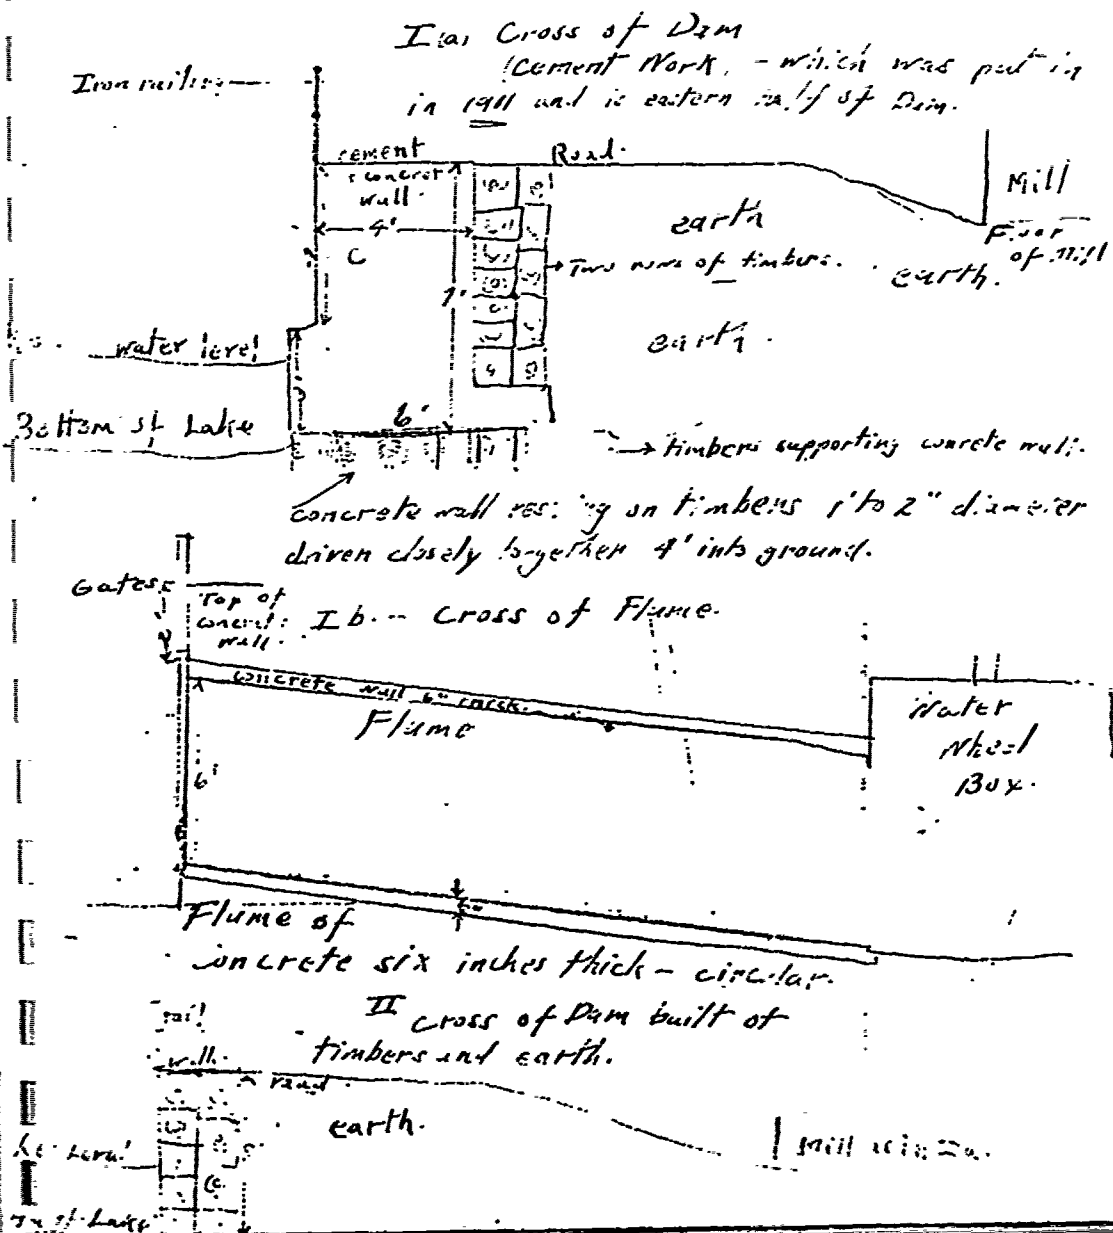 I(a) Cross of Dam
(Cement Work, - which was put in
in 1911 and is eastern half of Dam.
Iron railing
cement
& concret
wall.
Road.
Mill
4'
C
earth
Floor
of Mill
Two rows of timbers.
earth.
7'
earth.
water level
6'
Bottom of Lake
timbers supporting concrete wall.
concrete wall resting on timbers 1' to 2" diameter
driven closely together 4' into ground.
Gates
Top of
concrete
wall.
I b. -- Cross of Flume.
concrete wall 6" thick.
Flume
Water
Wheel
Box.
6'
Flume of
concrete six inches thick - circular.
II
Cross of Dam built of
timbers and earth.
rail
wall.
road
earth.
Mill
Level
of Lake